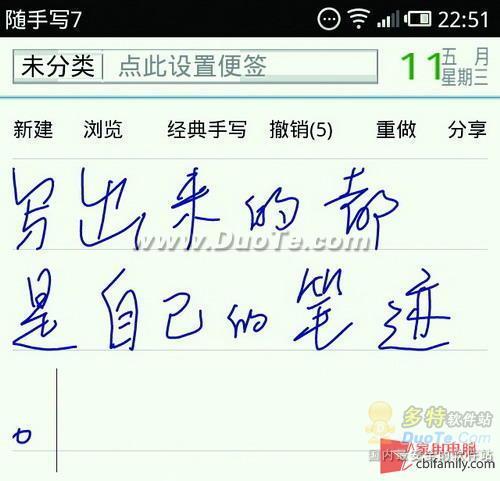 随手写7 22:51
未分类 点此设置便签 11 五月 星期三
新建 浏览 经典手写 撤销(5) 重做 分享
写出来的都
www.DuoTe.com
是自己的笔迹
。
多特软件站
DuoTe.com
国内最安全的软件站
家用电脑
cbifamily.com